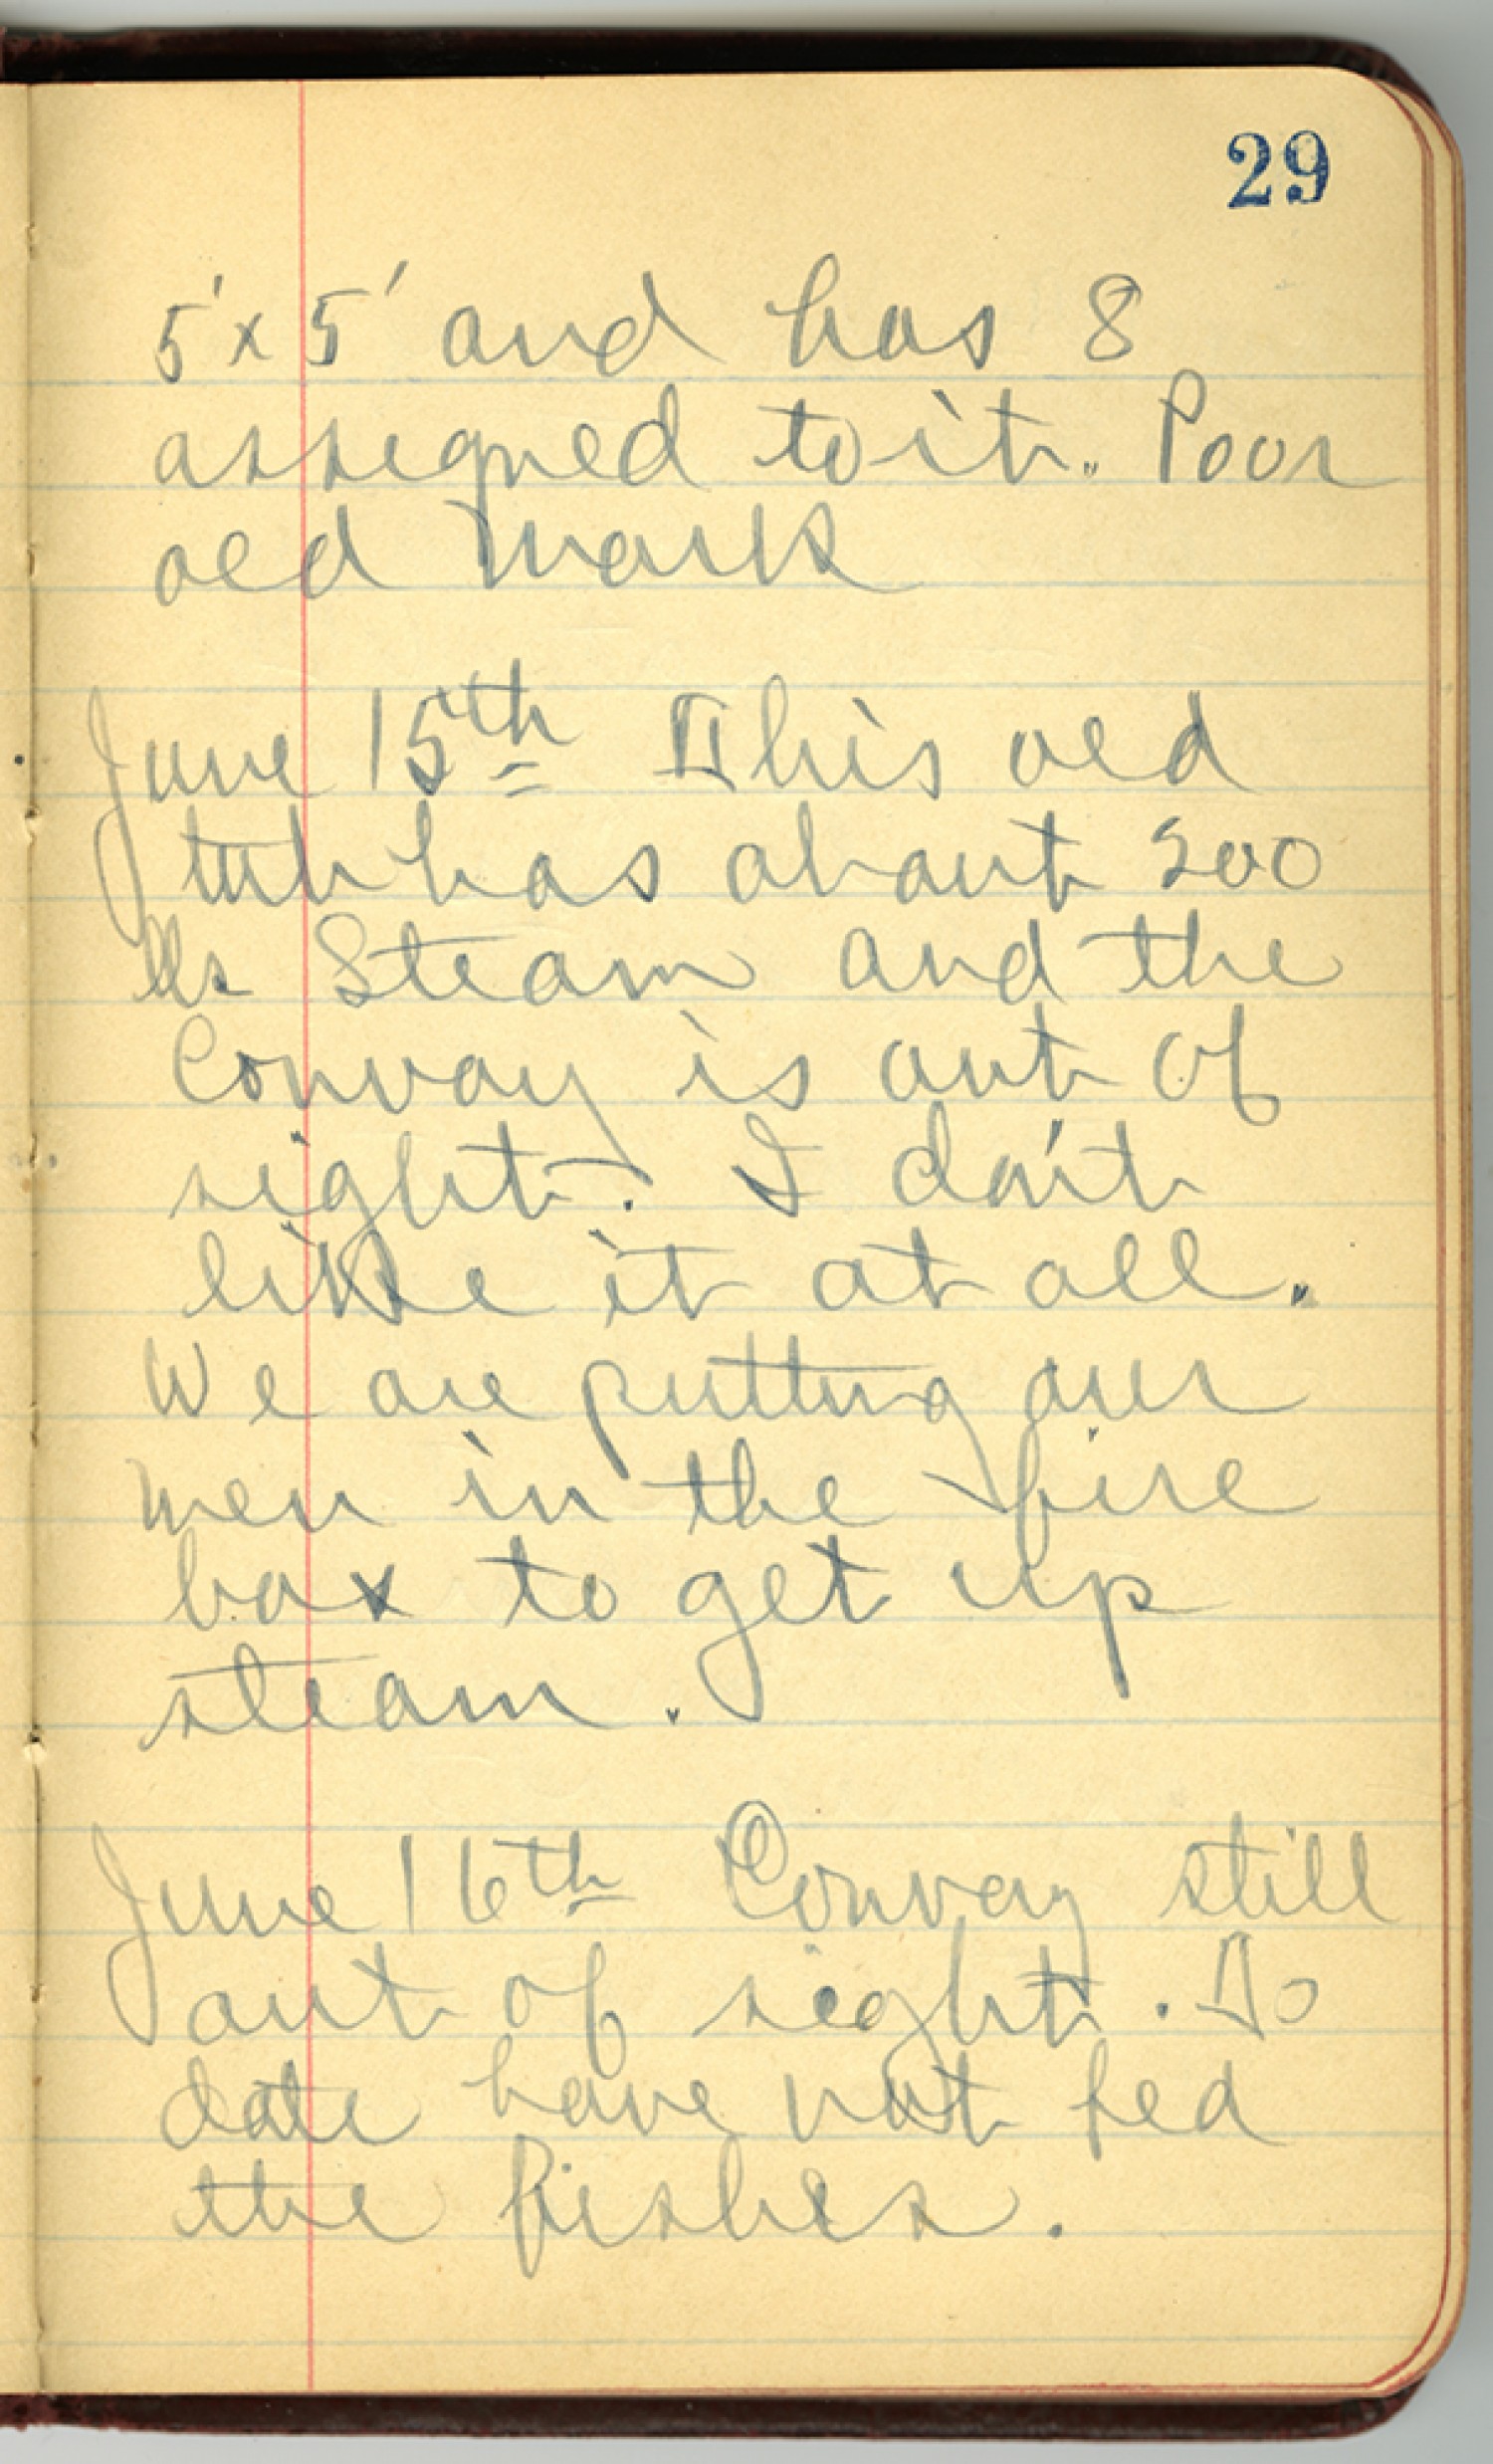 29
5' x 5' and has 8
assigned to it. Poor
old Mark
June 15th This old
tub has about 200
lbs Steam and the
Convoy is out of
sight. I don't
like it at all.
We are putting our
men in the fire
box to get up
steam.
June 16th Convoy still
out of sight. To
date have not fed
the fishes.